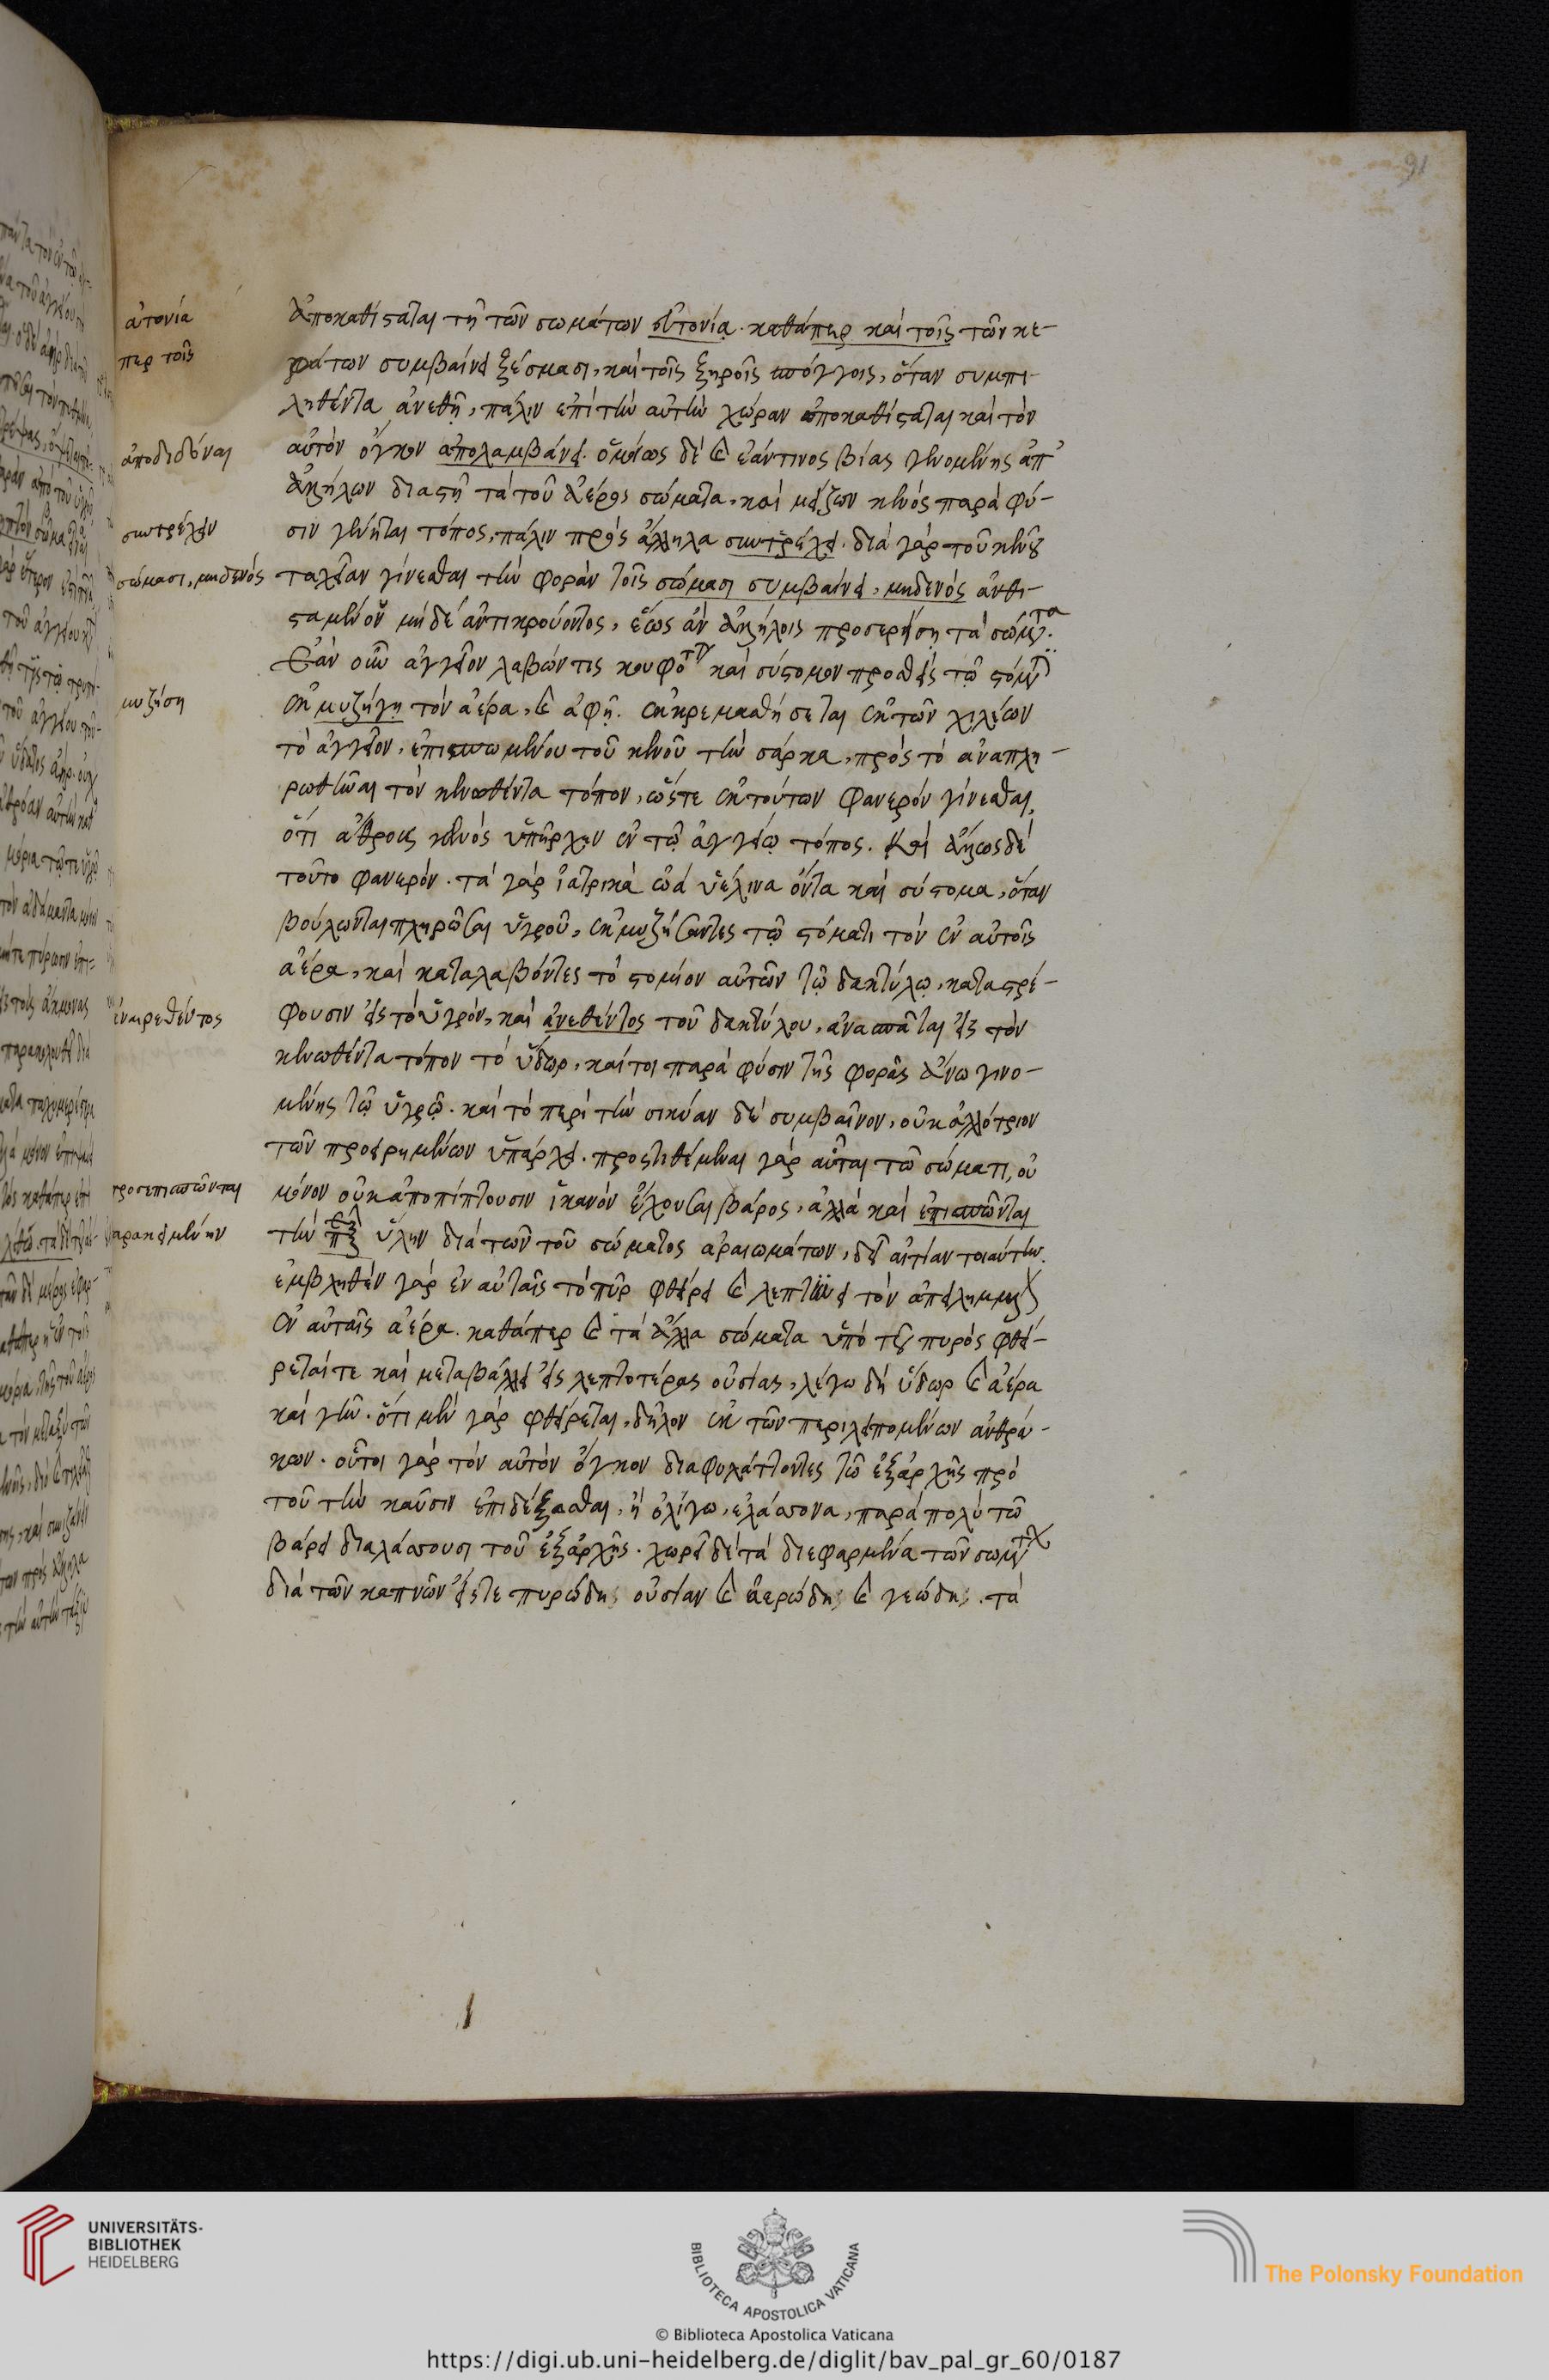 91
ἀποκαθίσταται τῇ τῶν σωμάτων εὐτονίᾳ. καθάπερ καὶ τοῖς τῶν κε-
ράτων συμβαίνει ξέσμασι, καὶ τοῖς ξηροῖς σπόγγοις, ὅταν συμπι-
ληθέντα ἀνεθῇ, πάλιν ἐπὶ τὴν αὐτὴν χώραν ἀποκαθίσταται καὶ τὸν
αὐτὸν ὄγκον ἀπολαμβάνει. ὁμοίως δὲ καὶ ἐάν τινος βίας γενομένης ἀπ'
ἀλλήλων διαστῇ τὰ τοῦ ἀέρος σώματα, καὶ μείζων κενὸς παρὰ φύ-
σιν γένηται τόπος, πάλιν πρὸς ἄλληλα συντρέχει. διὰ γὰρ τοῦ κενοῦ
ταχεῖαν γίνεσθαι τὴν φορὰν τοῖς σώμασι συμβαίνει, μηδενὸς ἀνθι-
σταμένου μηδὲ ἀντικρούοντος, ἕως ἂν ἀλλήλοις προσερείσῃ τὰ σώματα.
Ἐὰν οὖν ἀγγεῖον λαβών τις κουφότατον καὶ σύστομον προσθεὶς τῷ στόματι
ἐκμυζήσῃ τὸν ἀέρα, καὶ ἀφῇ. ἐκκρεμασθήσεται ἐκ τῶν χιλέων
τὸ ἀγγεῖον, ἐπισπωμένου τοῦ κενοῦ τὴν σάρκα, πρὸς τὸ ἀναπλη-
ρωθῆναι τὸν κενωθέντα τόπον, ὥστε ἐκ τούτων φανερὸν γίνεσθαι,
ὅτι ἄθρους κενὸς ὑπῆρχεν ἐν τῷ ἀγγείῳ τόπος. καὶ ἄλλως δὲ
τοῦτο φανερόν. τὰ γὰρ ἰατρικὰ ὠὰ ὑέλινα ὄντα καὶ σύστομα, ὅταν
βούλωνται πληρῶσαι ὑγροῦ, ἐκμυζήσαντες τῷ στόματι τὸν ἐν αὐτοῖς
ἀέρα, καὶ καταλαβόντες τὸ στόμιον αὐτῶν τῷ δακτύλῳ, καταστρέ-
φουσιν εἰς τὸ ὑγρόν, καὶ ἀνεθέντος τοῦ δακτύλου, ἀνασπᾶται εἰς τὸν
κενωθέντα τόπον τὸ ὕδωρ, καίτοι παρὰ φύσιν τῆς φορᾶς ἄνω γινο-
μένης τῷ ὑγρῷ. καὶ τὸ περὶ τὴν σικύαν δὲ συμβαῖνον, οὐκ ἀλλότριον
τῶν προειρημένων ὑπάρχει. προστιθέμεναι γὰρ αὗται τῷ σώματι, οὐ
μόνον οὐκ ἀποπίπτουσιν ἱκανὸν ἔχουσαι βάρος, ἀλλὰ καὶ ἐπισπῶνται
τὴν ὕλην διὰ τῶν τοῦ σώματος ἀραιωμάτων, δι' αἰτίαν τοιαύτην.
ἐμβληθὲν γὰρ ἐν αὐταῖς τὸ πῦρ φθείρει καὶ λεπτύνει τὸν ἀπειλημμένον
ἐν αὐταῖς ἀέρα. καθάπερ καὶ τὰ ἄλλα σώματα ὑπὸ τοῦ πυρὸς φθεί-
ρεταί τε καὶ μεταβάλλει εἰς λεπτοτέρας οὐσίας, λέγω δὴ ὕδωρ καὶ ἀέρα
καὶ γῆν. ὅτι μὲν γὰρ φθείρεται, δῆλον ἐκ τῶν περιλειπομένων ἀνθρά-
κων. οὗτοι γὰρ τὸν αὐτὸν ὄγκον διαφυλάττοντες τῷ ἐξἀρχῆς πρὸ
τοῦ τὴν καῦσιν ἐπιδέξασθαι, ἢ ὀλίγω, ἐλάσσονα, παρὰ πολὺ τῷ
βάρει διαλάσσουσι τοῦ ἐξἀρχῆς. χωρεῖ δὲ τὰ διεφαρμένα τῶν σωμάτων
διὰ τῶν καπνῶν εἴς τε πυρώδης οὐσίαν καὶ ἀερώδης καὶ γεώδης. τὰ
ἀτονία
περ τοῖς
ἀποδιδόναι
συντρέχειν
σώμασι, μηδενὸς
μυζήση
ἐναιρεθέντος
προσεπισπῶνται
παρακειμένην
UNIVERSITÄTS-
BIBLIOTHEK
HEIDELBERG
BIBLIOTECA APOSTOLICA VATICANA
The Polonsky Foundation
© Biblioteca Apostolica Vaticana
https://digi.ub.uni-heidelberg.de/diglit/bav_pal_gr_60/0187